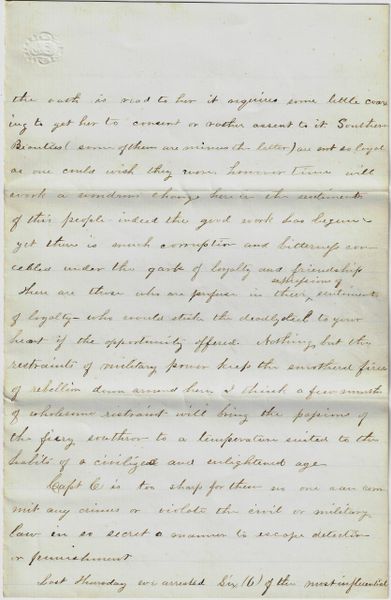 the oath is read to her it requires some little coax
ing to get her to consent or rather assent to it. Southern
Beauties (some of them are minus the letter) are not so loyal
as one could wish they were however time will
work a wondrous change here in the sentiments
of this people indeed the good work has begun
yet there is much corruption and bitterness con
cealed under the garb of loyalty and friendship
There are those who are profuse in their expressions of sentiments
of loyalty - who would strike the deadly steel to your
heart if the opportunity offered. Nothing but the
restraints of military power keep the smothered fires
of rebellion down around here I think a few months
of wholesome restraint will bring the passions of
the fiery southron to a temperature suited to the
habits of a civilized and enlightened age
Capt C is too sharp for them no one can com
mit any crimes or violate the civil or military
law in so secret a manner to escape detection
or punnishment
Last Thursday we arrested Six (6) of the most influential